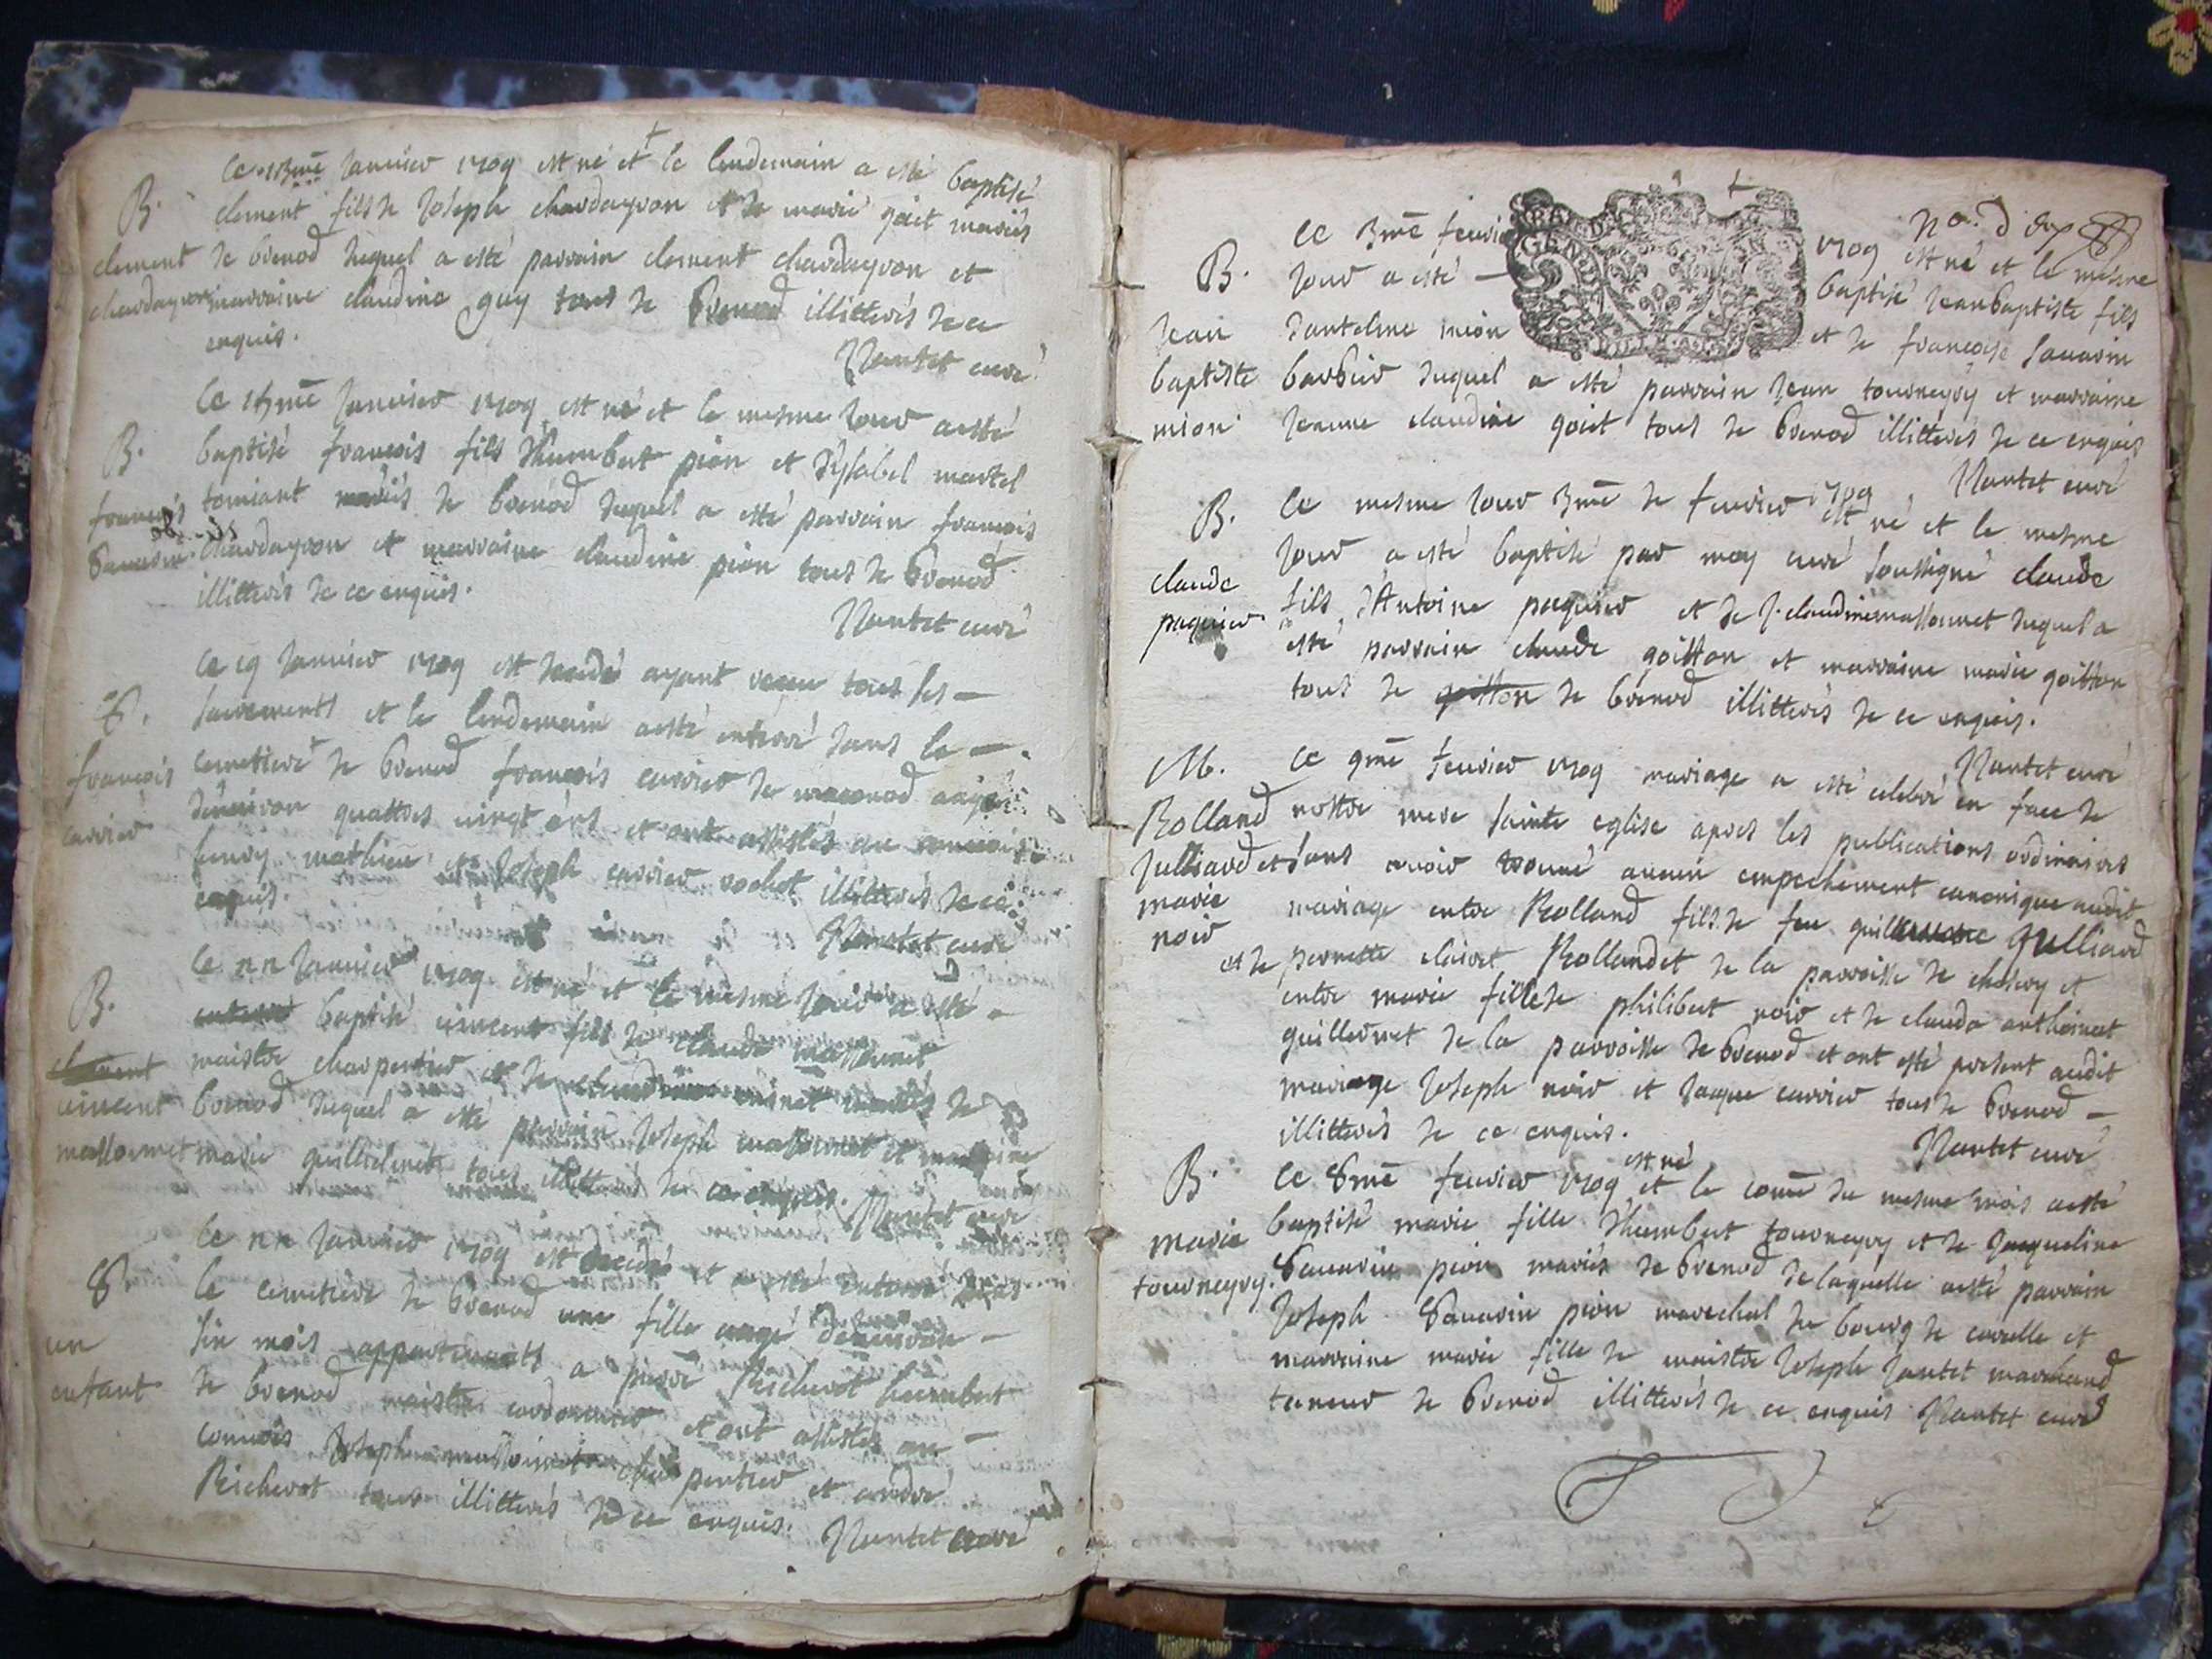 Ce 13me Janvier 1709 est né et le lendemain a esté baptisé
B. clement fils de Joseph chardayron et de marie goiet mariés
clement de brenod duquel a esté parrain clement chardayron et
chardayron marraine claudine guy tous de brenod illitterés de ce
enquis.
Nantet curé
Ce 15me Janvier 1709 est né et le mesme Jour a esté
B. baptisé francois fils d'humbert pion et d'ysabel martel
francois mariés de brenod duquel a esté parrain francois
chardayron et marraine claudine pion tous de brenod
illitterés de ce enquis.
Nantet curé
Ce 19 Janvier 1709 est decedé ayant receu tous les
sacrements et le lendemain a esté enterré dans le
francois cemettiere de brenod francois carrier de aagé
carrier d'environ quattres vingt ans et ont assistés au
mathieu et Joseph carrier rochet illitterés de ce
enquis.
Nantet curé
Ce 22 Janvier 1709 est né et le mesme Jour a esté
B. baptisé vincent fils de claude massonnet
maistre charpentier et de mariés de
vincent brenod duquel a esté parrain Joseph massonnet et marraine
massonnet marie tous illitterés de ce enquis. Nantet curé
Ce 22 Janvier 1709 est decedé et a esté enterré dans
le cemettiere de brenod une fille aagé d'environ
un six mois appartenants a pierre Richerot humbert
enfant de brenod maistre cordonnier et ont assistés au
convois Joseph massonnet charpentier et andré
Richerot tous illitterés de ce enquis. Nantet curé
GEN
Ce 3me feuvrier 1709 est né et le mesme
B. Jour a esté baptisé Jean baptiste fils
Jean d'antelme mion et de francoise savarin
baptiste barbier duquel a esté parrain Jean tourneyry et marraine
mion Jeanne claudine goiet tous de brenod illitterés de ce enquis
Nantet curé
B. Ce mesme Jour 3me de feuvrier 1709 est né et le mesme
Jour a esté baptisé par moy curé soussigné claude
claude paquier fils d'Antoine paquier et de J. claudine massonnet duquel a
esté parrain claude goitton et marraine marie goitton
tous de goitton de brenod illitterés de ce enquis.
Nantet curé
M. Ce 9me feuvrier 1709 mariage a esté celebré en face de
Rolland nostre mere sainte eglise apres les publications ordinaires
Julliard et sans avoir trouvé aucun empechement canonique audit
marie mariage entre Rolland fils de feu guillerme Julliard
noir et de pernette clairet Rollandet de la parroisse de chesery et
entre marie fille de philibert noir et de clauda anthoinet
guillermet de la parroisse de brenod et ont esté present audit
mariage Joseph noir et Jaque carrier tous de brenod
illitterés de ce enquis.
Nantet curé
B. Ce 8me feuvrier 1709 est né et le du mesme mois a esté
marie baptisé marie fille d'humbert tourneyry et de Jacqueline
tourneyry. Savarin pion mariés de brenod de laquelle a esté parrain
Joseph Savarin pion marechal du bourg de et
marraine marie fille de maistre Joseph Jantet marchand
taneur de brenod illitterés de ce enquis Nantet curé